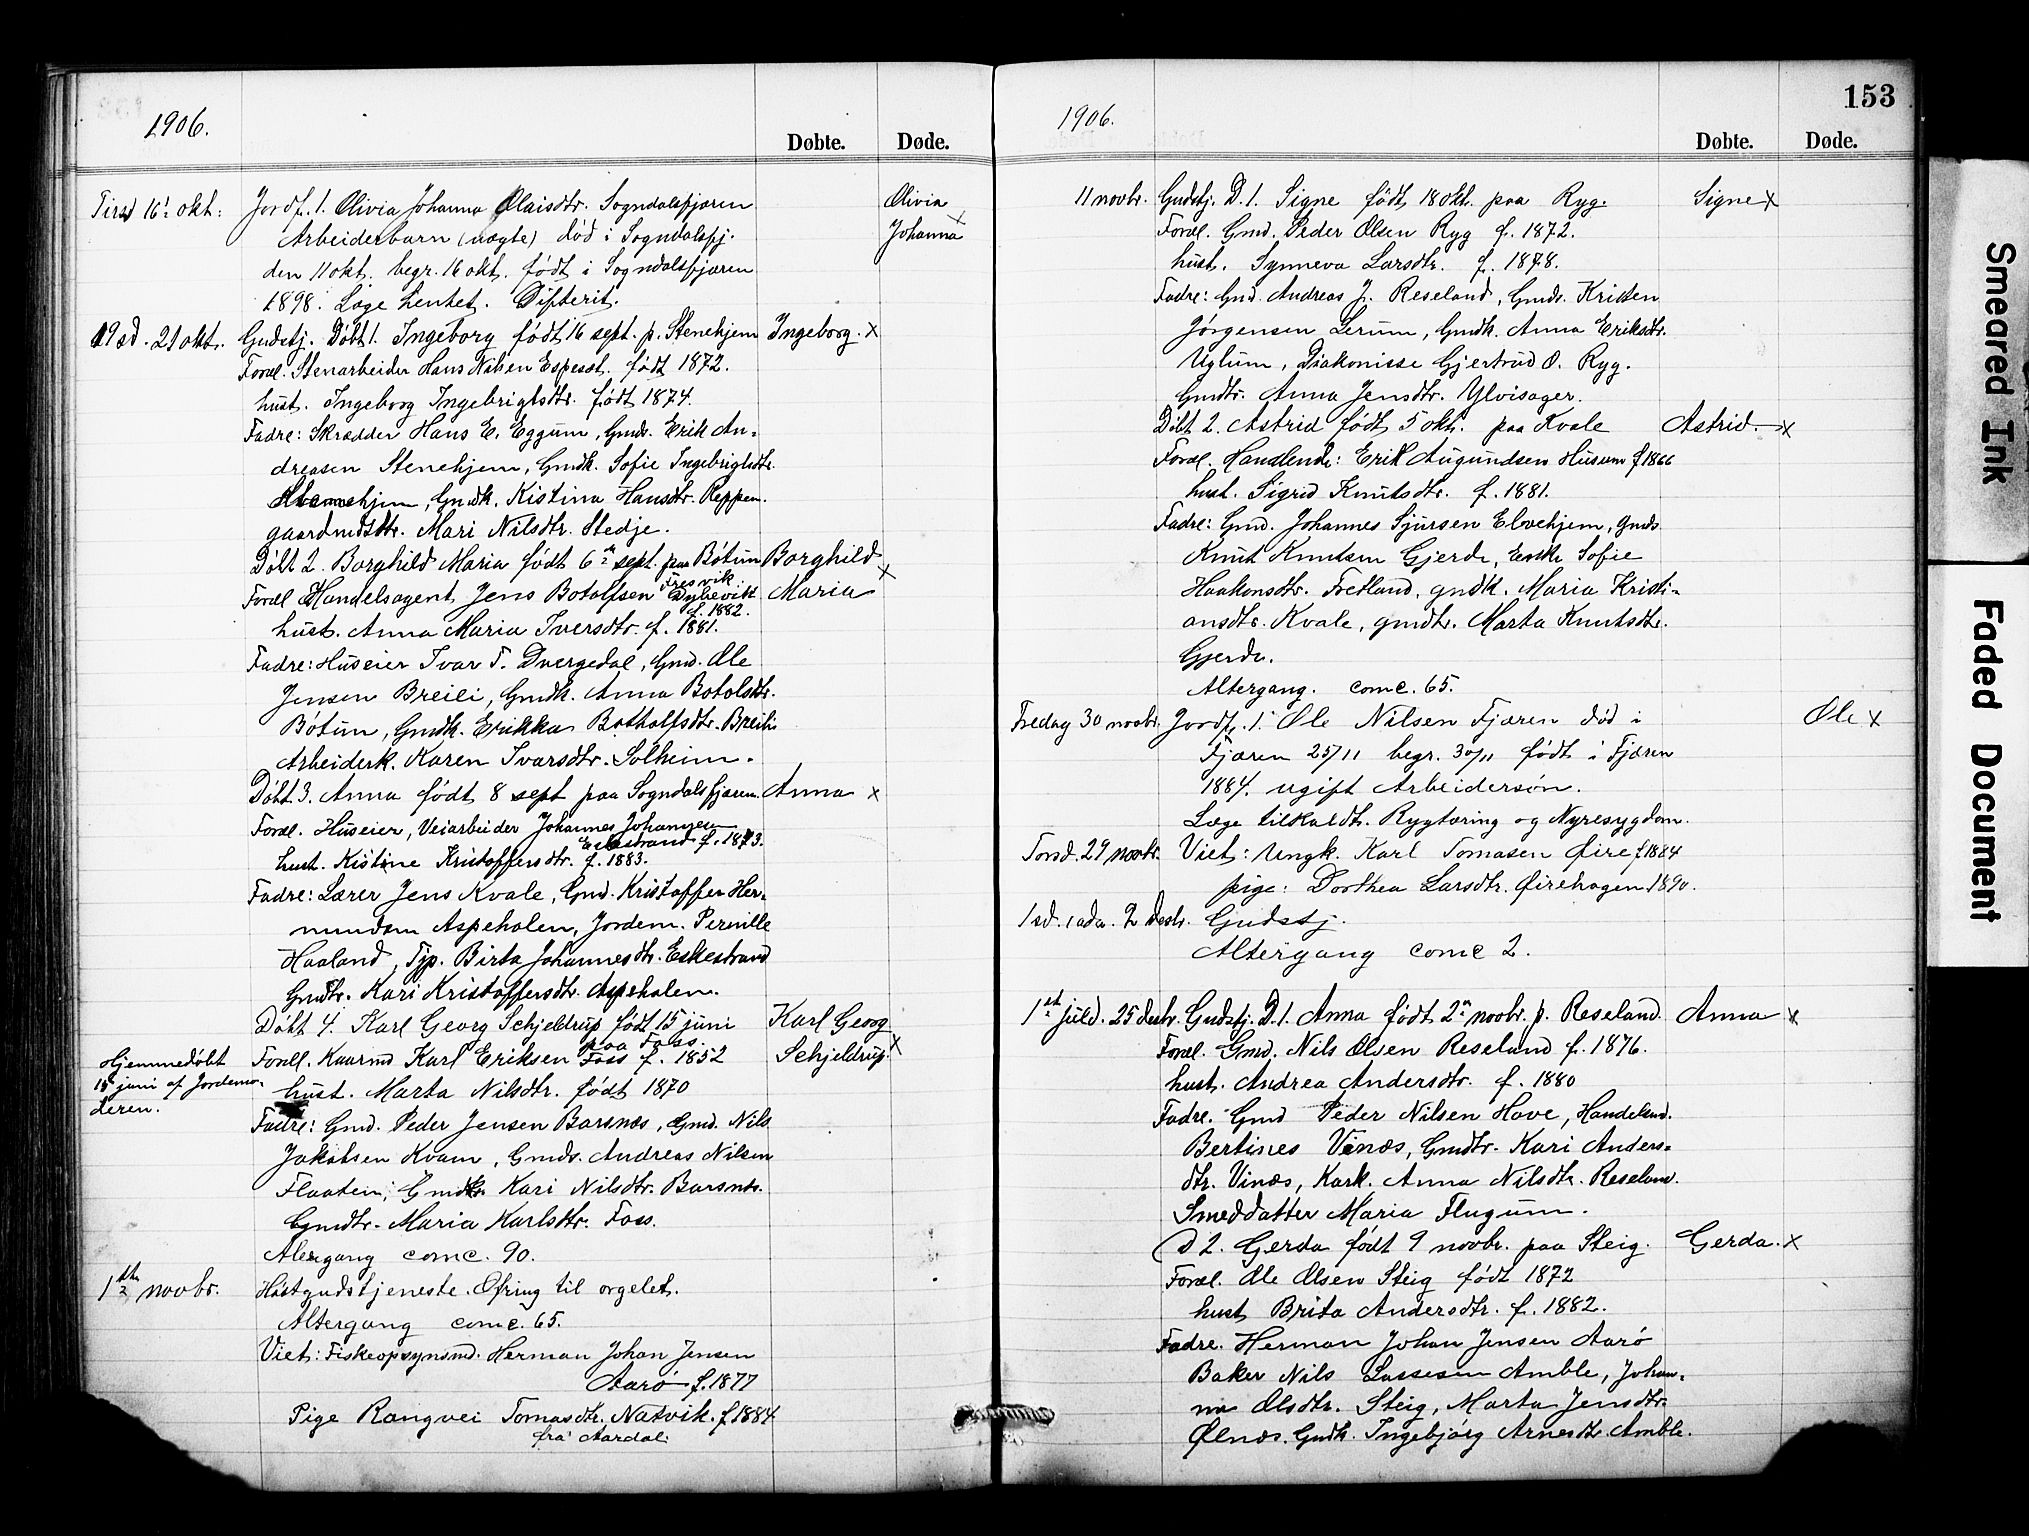 1906.
Døbte.
Døde.
Tirsd 16' okt:
Jordf. 1. Olivia Johanna Olaisdtr. Sogndalsfjæren
Olivia
Arbeiderbarn (uægte) død i Sogndalsfj.
Johanna x
den 11 okt. begr. 16 okt. født i Sogndalsfjæren
1898. Læge hentet. Difterit.
19 sd. 21 okt.
Gudstj. Døbt 1. Ingeborg født 16 sept. p. Stenehjem
Ingeborg. x
Foræl. Stenarbeider Hans Nilsen Espeset. født 1872.
hust. Ingeborg Ingebrigtsdtr. født 1874.
Fadre: Skrædder Hans E. Eggum, Gmds. Erik An-
dreasen Stenehjem, Gmdk. Sofie Ingebrigtsdtr.
Stenehjem, Gmdk. Kistina Hansdtr. Reppen.
gaardmdsdtr. Mari Nilsdtr. Stedje.
Døbt 2. Borghild Maria født 6te sept. paa Bótun
Borghild x
Fresvik
Foræl Handelsagent Jens Botolfsen Dybevik
Maria
f. 1882.
hust. Anna Maria Iversdtr. f. 1881.
Fadre: Huseier Ivar T. Dvergedal, Gmd. Ole
Jensen Breili, Gmdk. Anna Botolsdtr.
Bótun, Gmdk. Erikka Botholfsdtr. Breili
Arbeiderk. Karen Ivarsdtr. Solheim.
Døbt 3. Anna født 8 sept paa Sogndalsfjæren.
Anna x
Foræl. Huseier, Veiarbeider Johannes Johannesen
Eskestrand f. 1873.
hust. Kistine Kristoffersdtr. f. 1883.
Fadre: Lærer Jens Kvale, Gmd. Kristoffer Her-
mundsen Aspehalen, Jordem. Pernille
Haaland, Tjp. Birta Johannesdtr. Eskestrand
Gmdtr. Kari Kristoffersdtr. Aspehalen.
Døbt 4. Karl Georg Schjeldrup født 15 juni
Karl Georg
paa Foss.
Hjemmedøbt
Foræl. Kaarmd Karl Eriksen Foss f. 1852
Schjeldrup. x
15 juni af Jordemo-
hust. Marta Nilsdtr. født 1870
deren.
Fadre: Gmd. Peder Jensen Barsnes, Gmd. Nils
Jakobsen Kvam, Gmds. Andreas Nilsen
Flaaten, Gmdk. Kari Nilsdtr. Barsnes.
Gmdtr. Maria Karlsdtr. Foss.
Altergang comc. 90.
1ste novbr.
Høstgudstjeneste. Ofring til orgelet.
Altergang comc. 65.
Viet: Fiskeopsynsmd. Herman Johan Jensen
Aarø f. 1877
Pige Rangvei Tomasdtr. Natvik. f 1884
fra Aardal.
153
1906.
Døbte.
Døde.
11 novbr.
Gudstj. D. 1. Signe født 18 okt. paa Ryg.
Signe x
Foræl. Gmd. Peder Olsen Ryg f. 1872.
hust. Synneva Larsdtr. f. 1878.
Fadre: Gmd. Andreas J. Reseland, Gmds. Kristen
Jørgensen Lerum, Gmdk. Anna Eriksdtr.
Uglum, Diakonisse Gjertrud O. Ryg.
Gmdtr. Anna Jensdtr. Ylvisager.
Døbt 2. Astrid født 5 okt. paa Kvale
Astrid. x
Foræl. Handlende: Erik Augundsen Husum f 1866
hust. Sigrid Knutsdtr. f. 1881.
Fadre: Gmd. Johannes Sjursen Elvehjem, gmds
Knut Knutsen Gjerde, Enke Sofie
Haakonsdtr. Fretland, gmdk. Maria Kristi-
ansdtr. Kvale, gmdtr. Marta Knutsdtr.
Gjerde.
Altergang. comc. 65.
Fredag 30 novbr.
Jordf. 1. Ole Nilsen Fjæren død i
Ole x
Fjæren 25/11 begr. 30/11 født i Fjæren
1884. ugift Arbeidersøn.
Læge tilkaldt. Rygtæring og Nyresygdom.
Torsd. 29 novbr.
Viet: Ungk. Karl Tomasen Øire f 1884
pige: Dorthea Larsdtr. Øirehagen 1890.
1 sd. i adv. 2 desbr.
Gudstj.
Altergang comc 2.
1ste juld. 25 desbr.
Gudstj. D. 1. Anna født 2n novbr. p. Reseland.
Anna x
Foræl. Gmd. Nils Olsen Reseland f. 1876.
hust. Andrea Andersdtr. f. 1880
Fadre. Gmd Peder Nilsen Hove, Handelsmd.
Bertines Vinæs, Gmdtr. Kari Anders-
dtr. Vinæs, Kark. Anna Nilsdtr. Reseland.
Smeddatter Maria Flugum.
D 2. Gerda født 9 novbr. paa Steig.
Gerda. x
Foræl. Ole Olsen Steig født 1872
hust Brita Andersdtr. f. 1882.
Fadre. Herman Johan Jensen Aarø
Baker Nils Lassesen Amble, Johan-
na Olsdtr. Steig, Marta Jensdtr.
Ølnæs. Gmdk. Ingebjörg Arnesdtr. Amble.
Smeared Ink
Faded Document